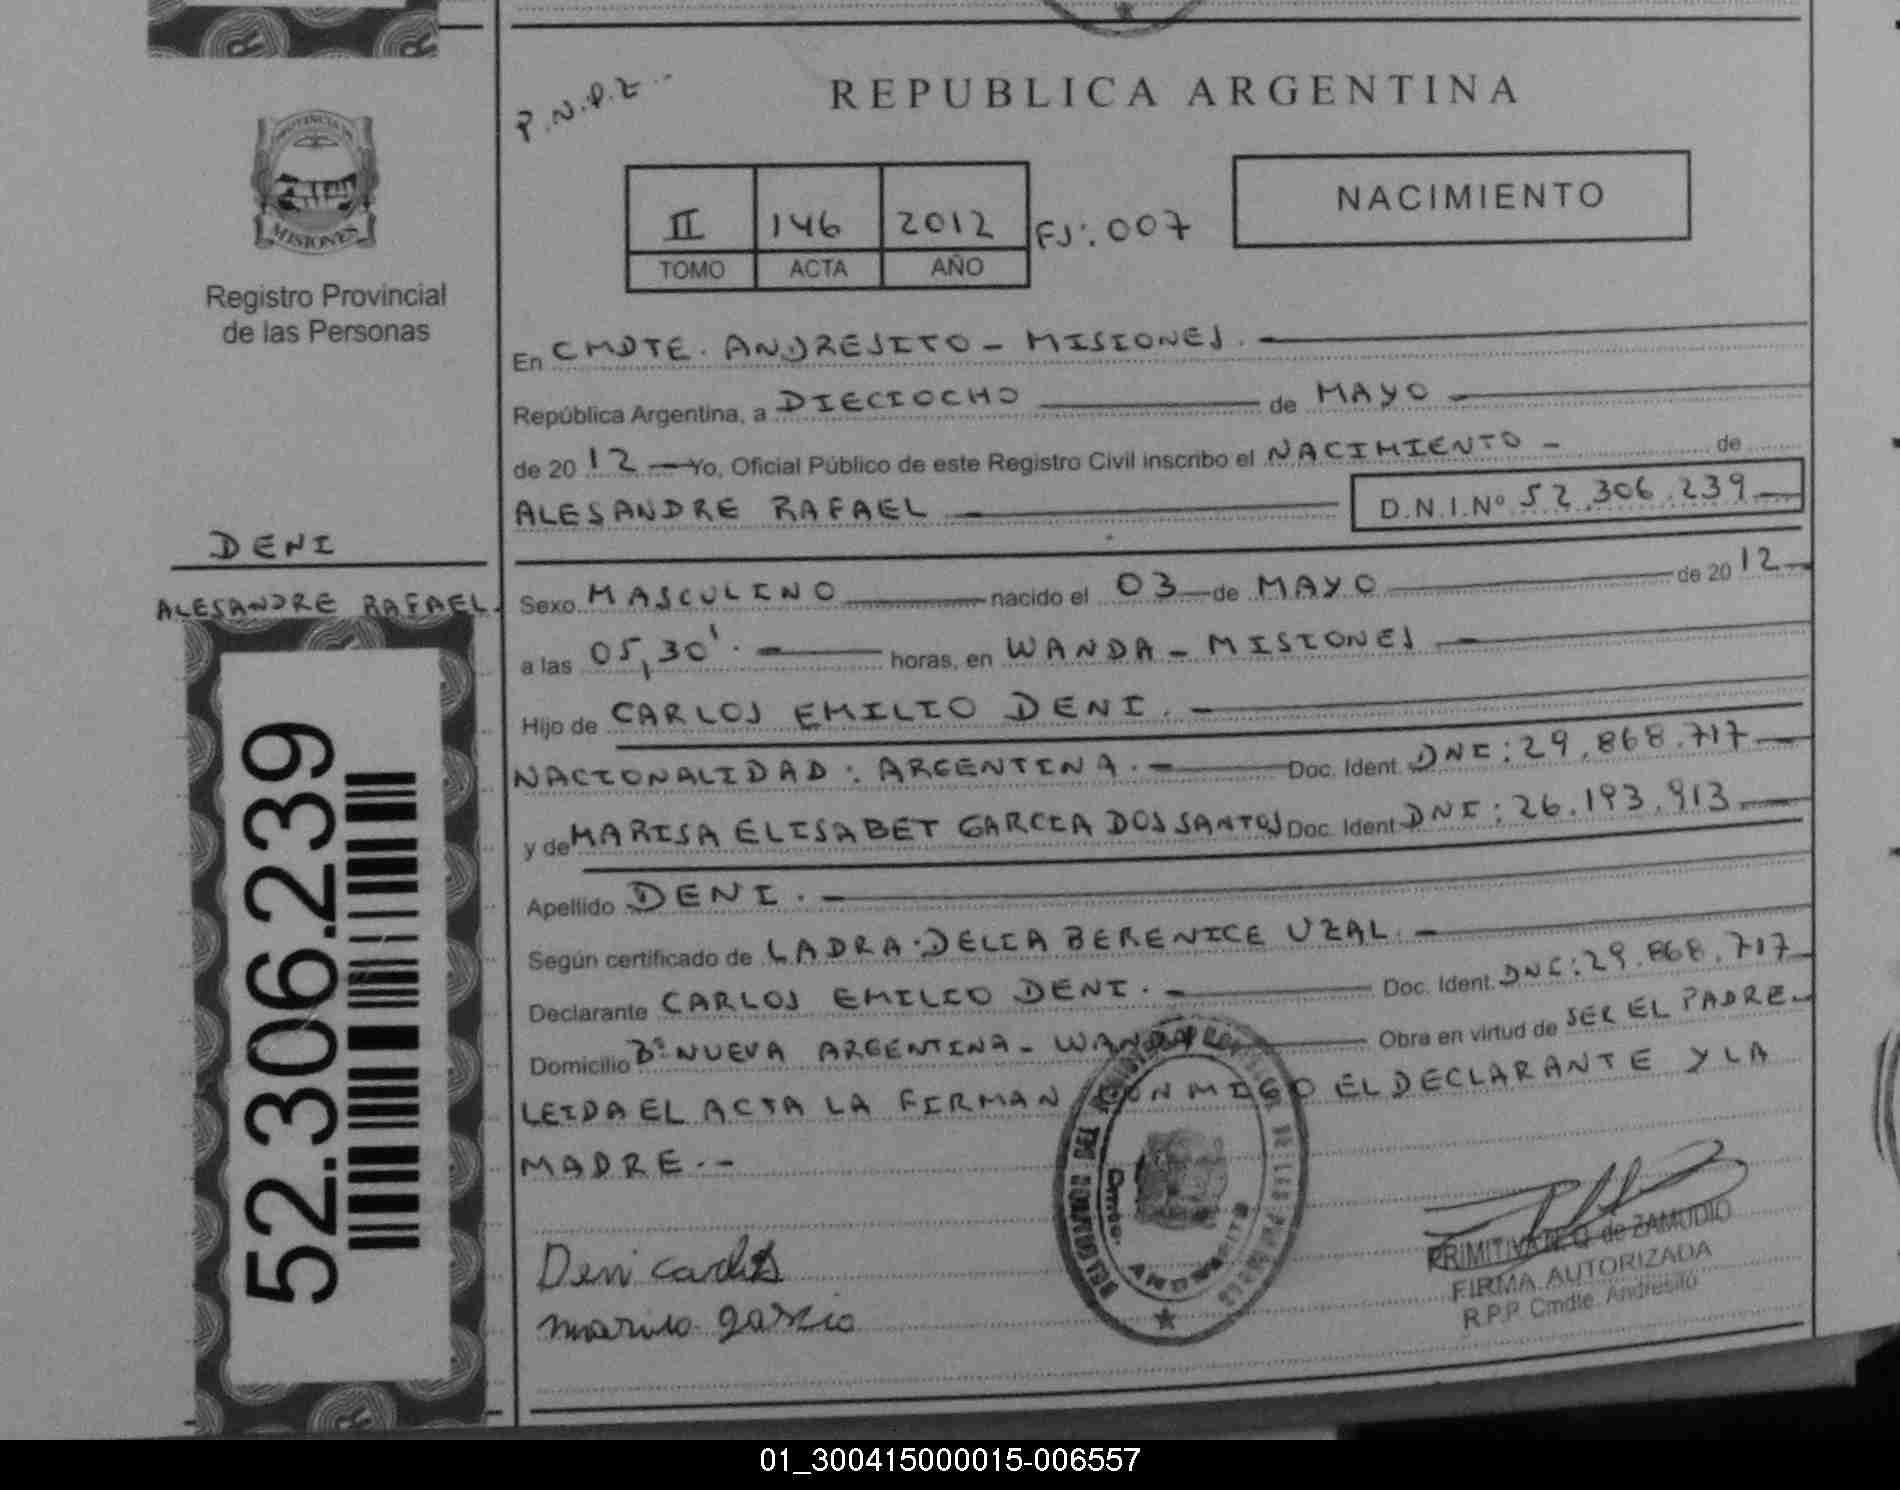 P.N.P.Z..
REPUBLICA ARGENTINA
PROVINCIA DE
MISIONES
Registro Provincial
de las Personas
II 146 2012 FJ:. 007
TOMO ACTA AÑO
NACIMIENTO
En CMDTE. ANDRESITO - MISIONES. -
República Argentina, a DIECIOCHO de MAYO
de 20 12 Yo, Oficial Público de este Registro Civil inscribo el NACIMIENTO - de
ALESANDRE RAFAEL D.N.I.Nº 52.306.239
DENI
ALESANDRE RAFAEL.
Sexo MASCULINO nacido el 03 de MAYO de 20 12
a las 05,30'. horas, en WANDA - MISIONES
Hijo de CARLOS EMILIO DENI.
NACIONALIDAD: ARGENTINA. Doc. Ident. DNI: 29.868.717
y de MARISA ELISABET GARCIA DOS SANTOS Doc. Ident DNI: 26.193.913
Apellido DENI.
Según certificado de LADRA. DELIA BERENICE UZAL.
Declarante CARLOS EMILIO DENI. Doc. Ident. DNI: 29.868.717
Domicilio Bº NUEVA ARGENTINA - WANDA Obra en virtud de SER EL PADRE.
LEIDA EL ACTA LA FIRMAN CONMIGO EL DECLARANTE Y LA
MADRE. -
52.306.239
Deni Carlos
ANDRESITO
PRIMITIVA N. Q. de ZAMUDIO
FIRMA AUTORIZADA
R.P.P. Cmdte. Andresito
01_300415000015-006557